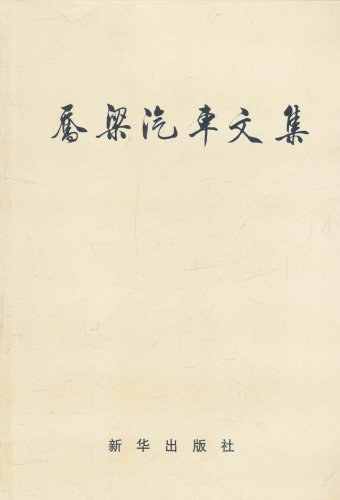 喬梁汽車文集
新华出版社